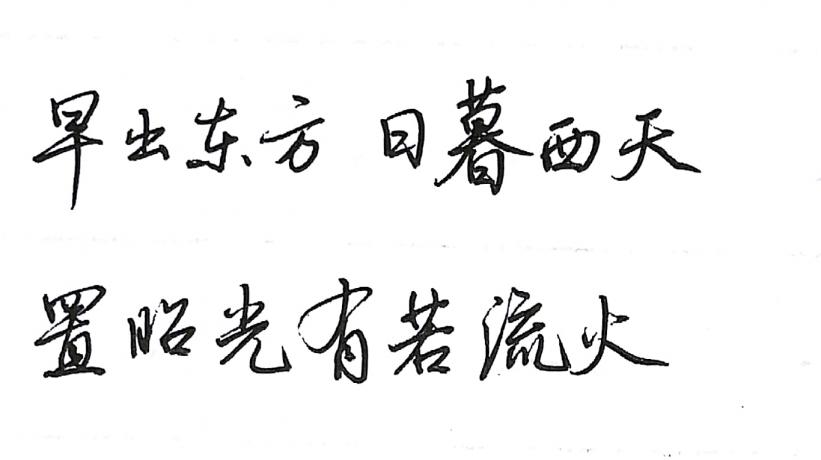 早出东方 日暮西天
置昭光有若流火